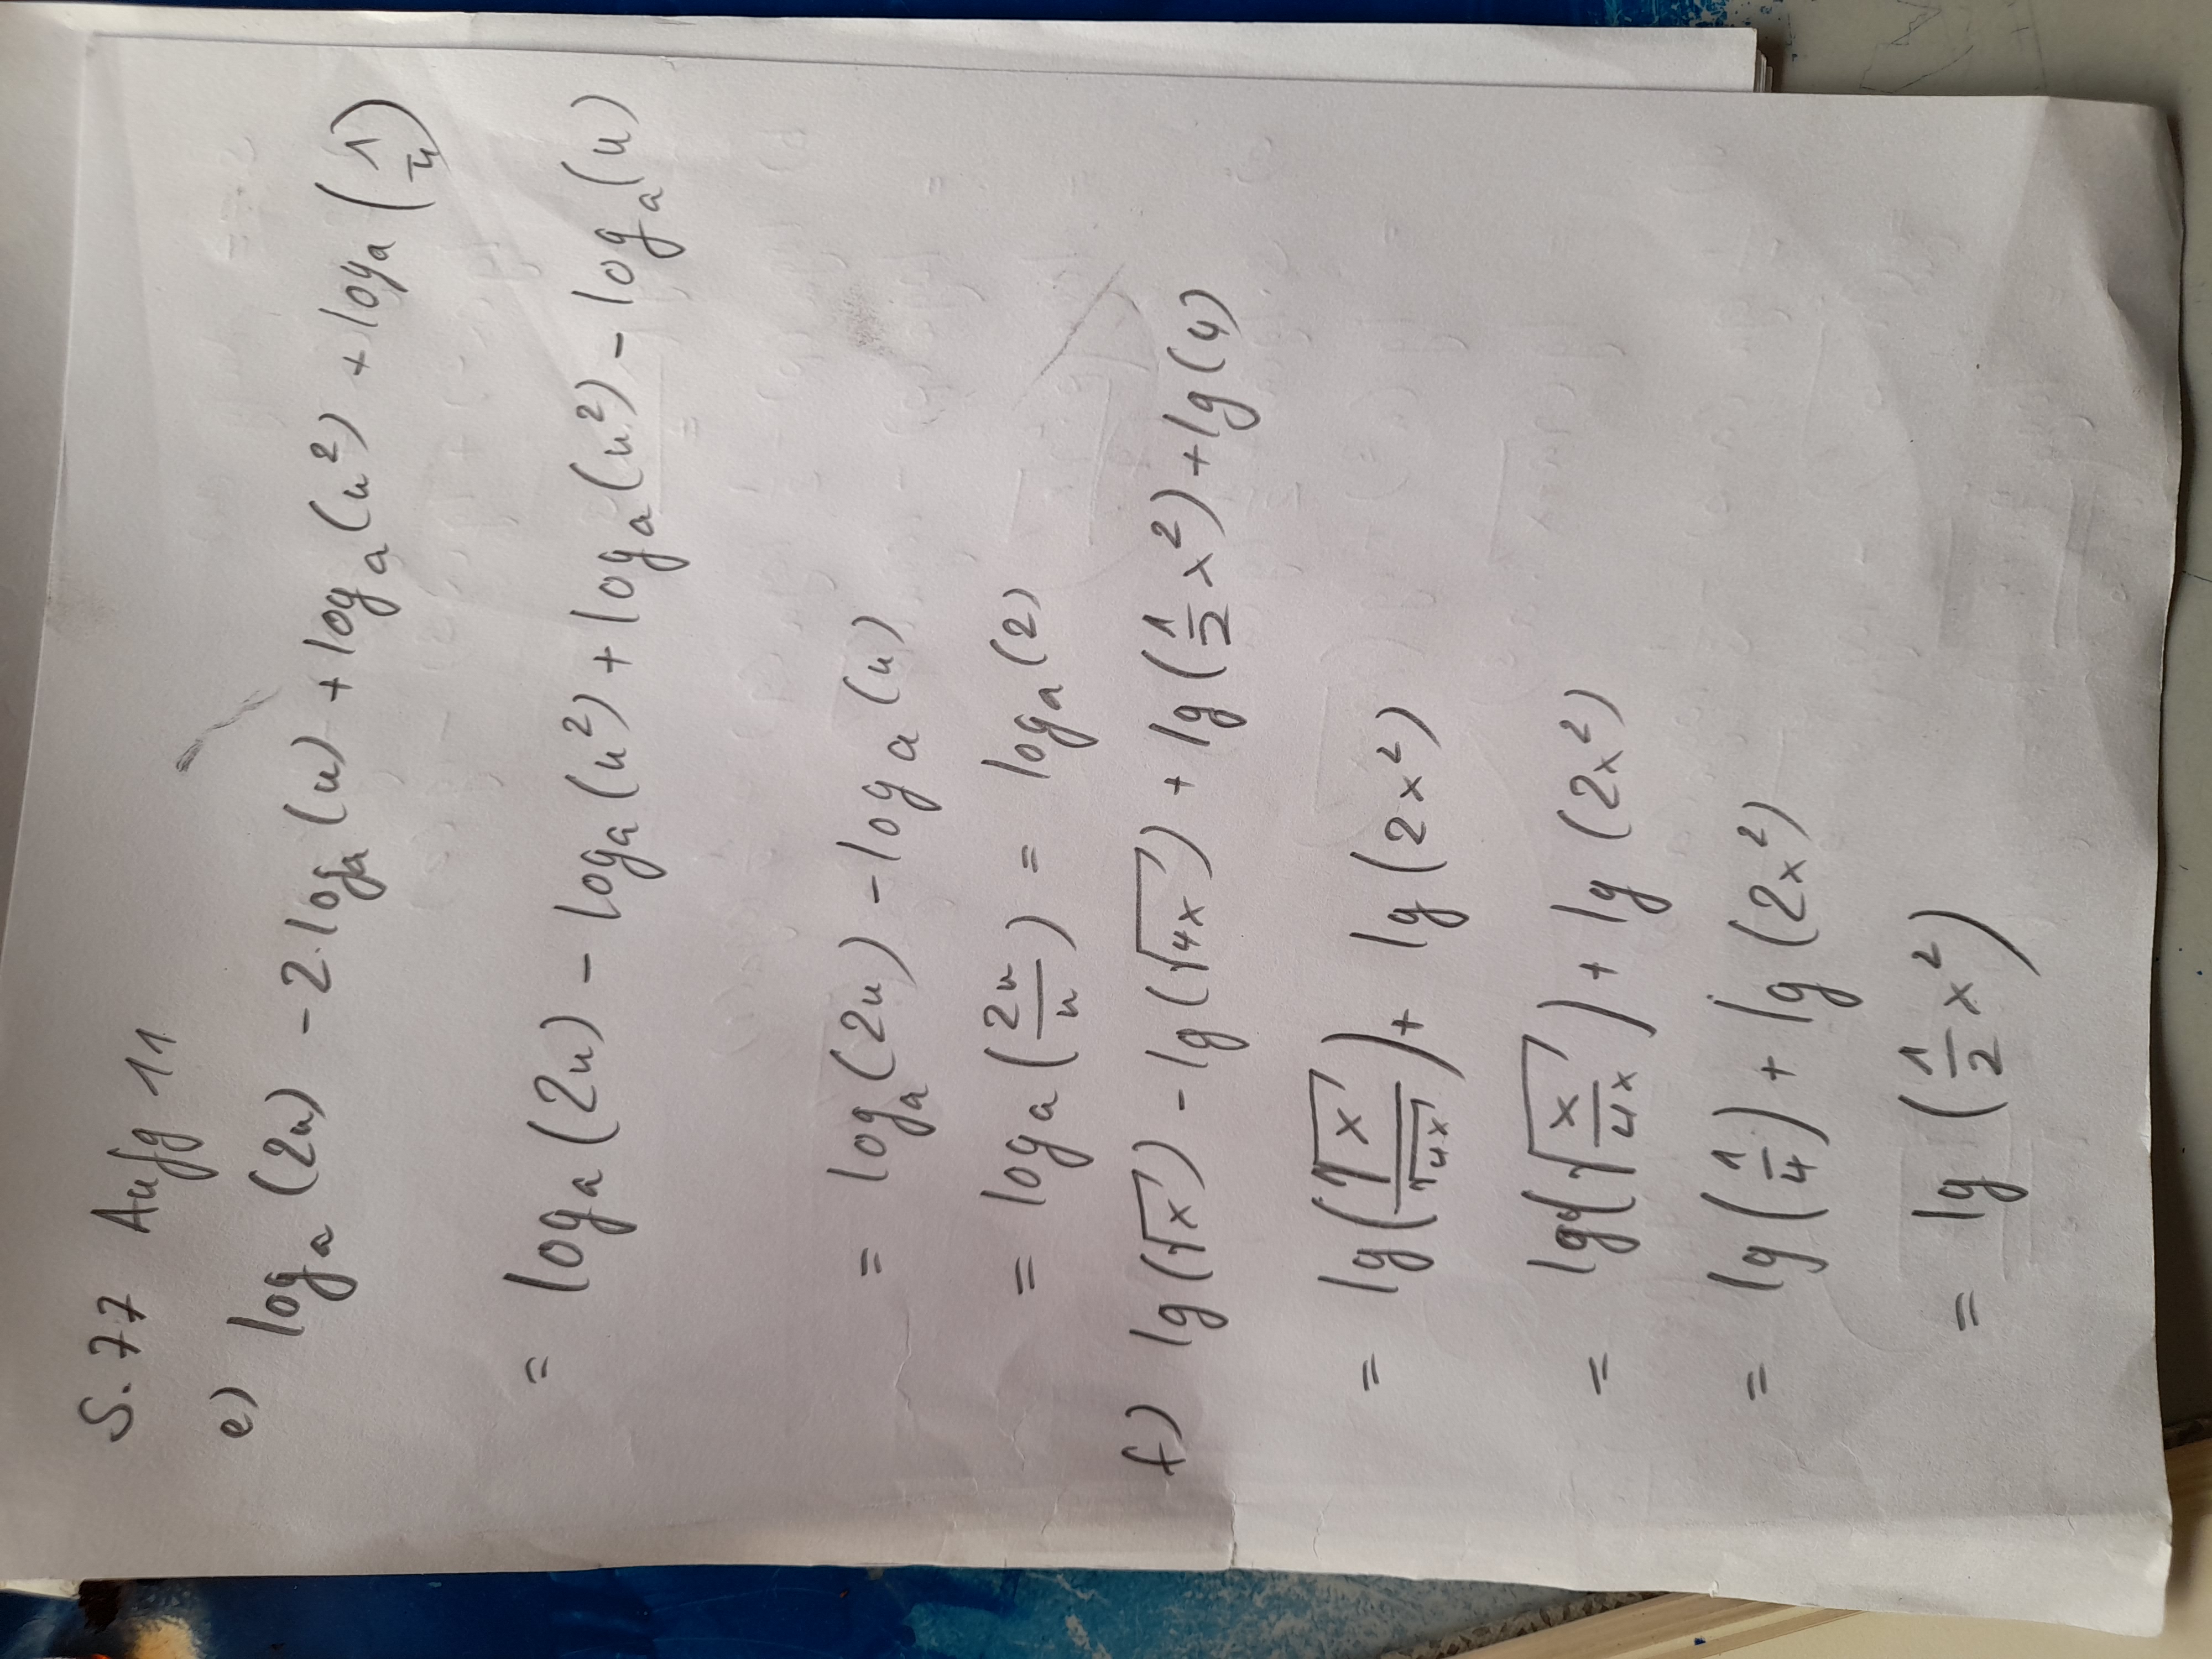 S. 77 Aufg 11
e) logₐ(2u) - 2·logₐ(u) + logₐ(u²) + logₐ(1/u)
= logₐ(2u) - logₐ(u²) + logₐ(u²) - logₐ(u)
= logₐ(2u) - logₐ(u)
= logₐ(2u/u) = logₐ(2)
f) lg(√x) - lg(√4x) + lg(1/2 x²) + lg(4)
= lg(√x/√4x) + lg(2x²)
= lg(√x/4x) + lg(2x²)
= lg(1/4) + lg(2x²)
= lg(1/2 x²)